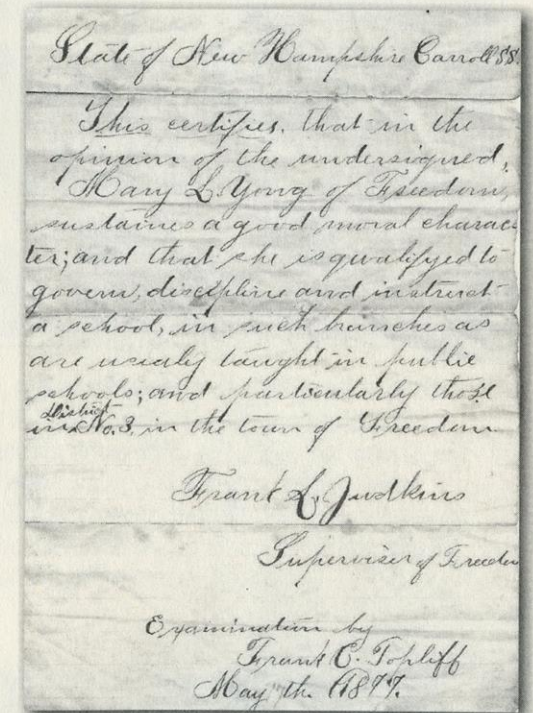 State of New Hampshire Carroll SS.
This certifies, that in the
opinion of the undersigned,
Mary L. Yong of Freedom,
sustaines a good moral charac-
ter; and that she is qualifyed to
govern, discipline and instruct
a school, in such branches as
are usualy taught in public
schools; and particularly those
District
in No. 3, in the town of Freedom.
Frank L. Judkins
Supervisor of Freedom
Examination by
Frank C. Topliff
May 1877.